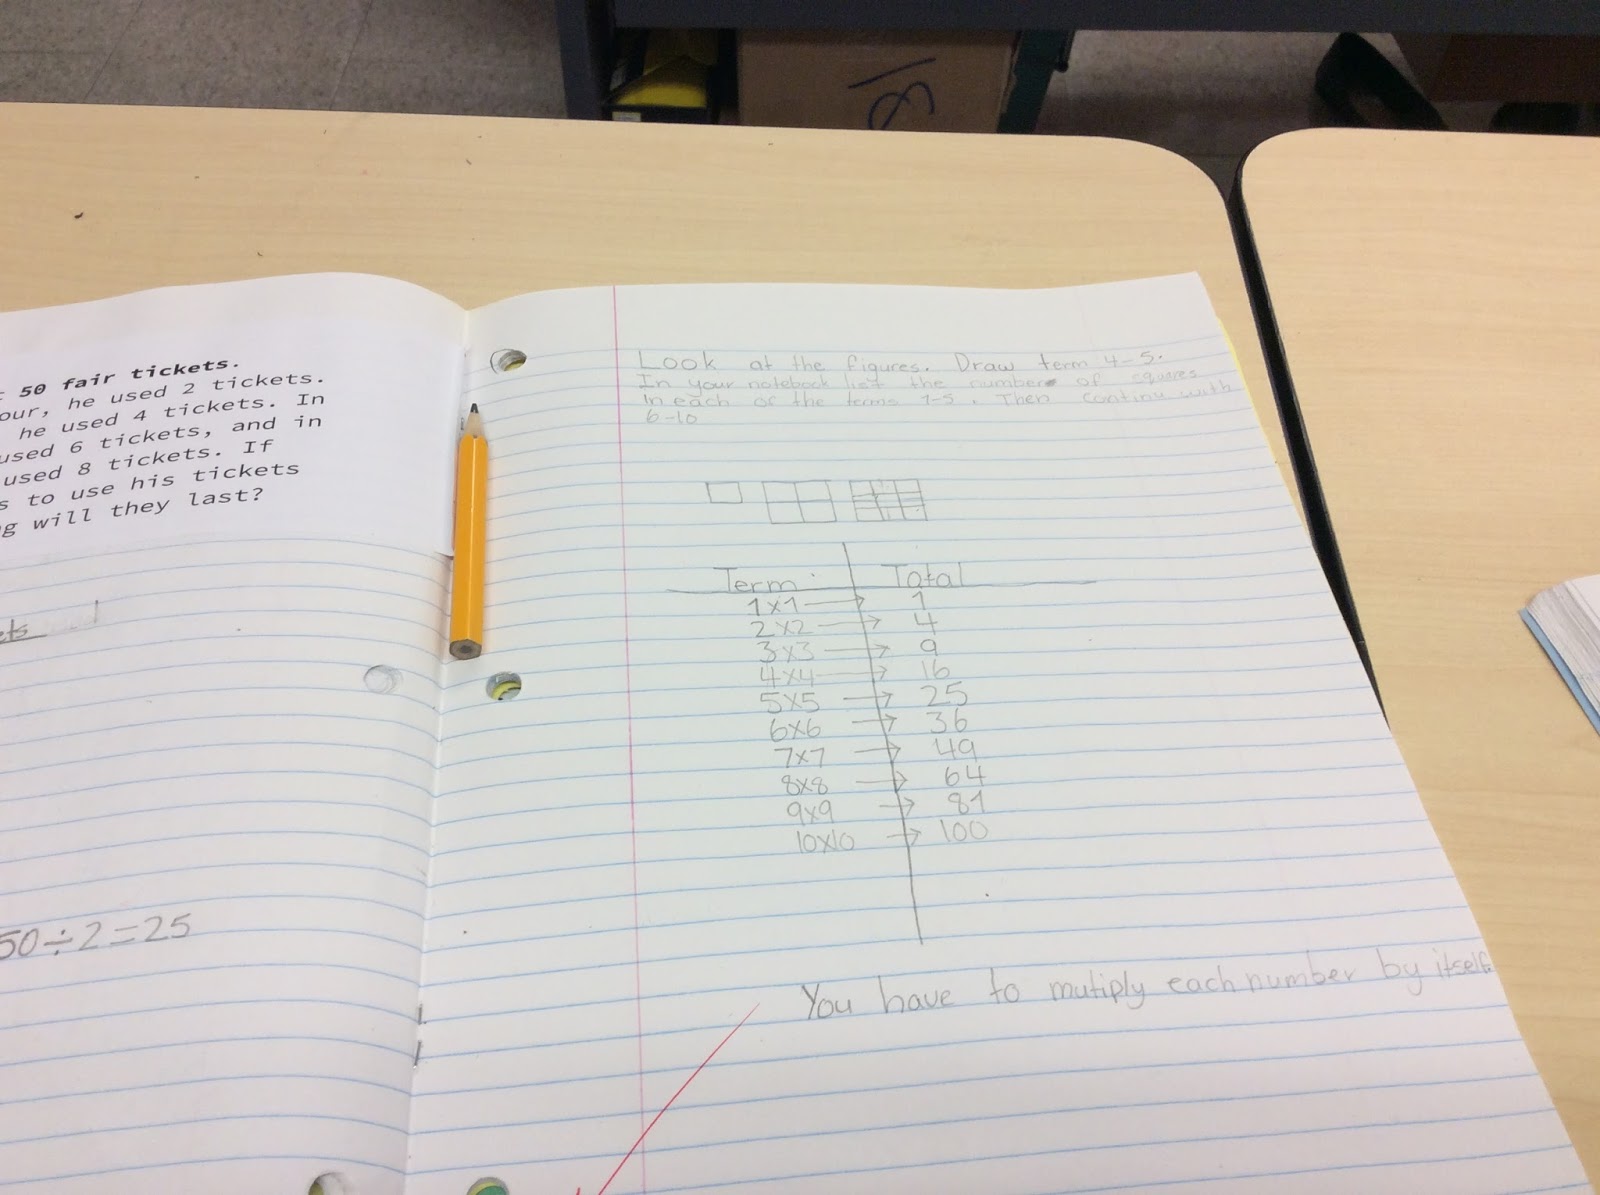 50 fair tickets.
our, he used 2 tickets.
he used 4 tickets. In
used 6 tickets, and in
used 8 tickets. If
s to use his tickets
g will they last?
ets
50÷2=25
Look at the figures. Draw term 4-5.
In your notebook list the number of squares
In each of the terms 1-5. Then continu with
6-10
Term Total
1x1 → 1
2x2 → 4
3x3 → 9
4x4 → 16
5x5 → 25
6x6 → 36
7x7 → 49
8x8 → 64
9x9 → 81
10x10 → 100
You have to mutiply each number by itself.